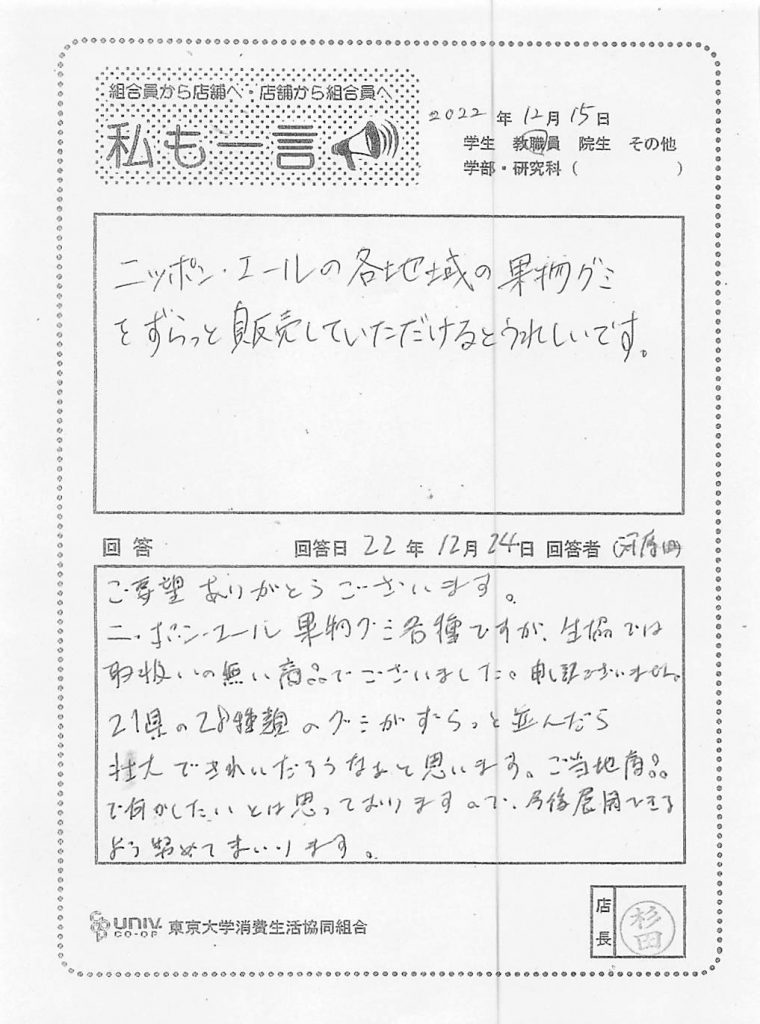 組合員から店舗へ・店舗から組合員へ
私も一言
2022年12月15日
学生 教職員 院生 その他
学部・研究科( )
ニッポン・エールの各地域の果物グミ
をずらっと販売していただけるとうれしいです。
回答 回答日 22年12月24日 回答者
ご要望ありがとうございます。
ニッポン・エール 果物グミ各種ですが、生協では
取扱いの無い商品でございました。申し訳ございません。
21県の28種類のグミがずらっと並んだら
壮大できれいだろうなあと思います。ご当地商品
で何かしたいとは思っておりますので、今後展開できる
よう努めてまいります。
UNIV. CO-OP 東京大学消費生活協同組合
店長 杉田